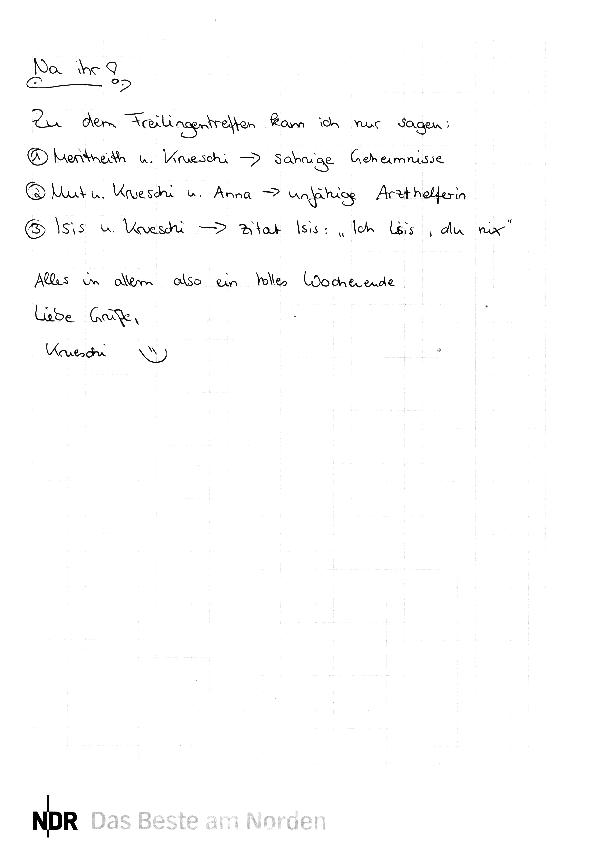 Na ihr!
Zu dem Freilingentreffen kann ich nur sagen:
① Meritneith u. Krueschi → sahnige Geheimnisse
② Mut u. Krueschi u. Anna → unfähige Arzthelferin
③ Isis u. Krueschi → Zitat Isis: „Ich Isis, du nix"
Alles in allem also ein tolles Wochenende.
Liebe Grüße,
Krueschi
NDR Das Beste am Norden